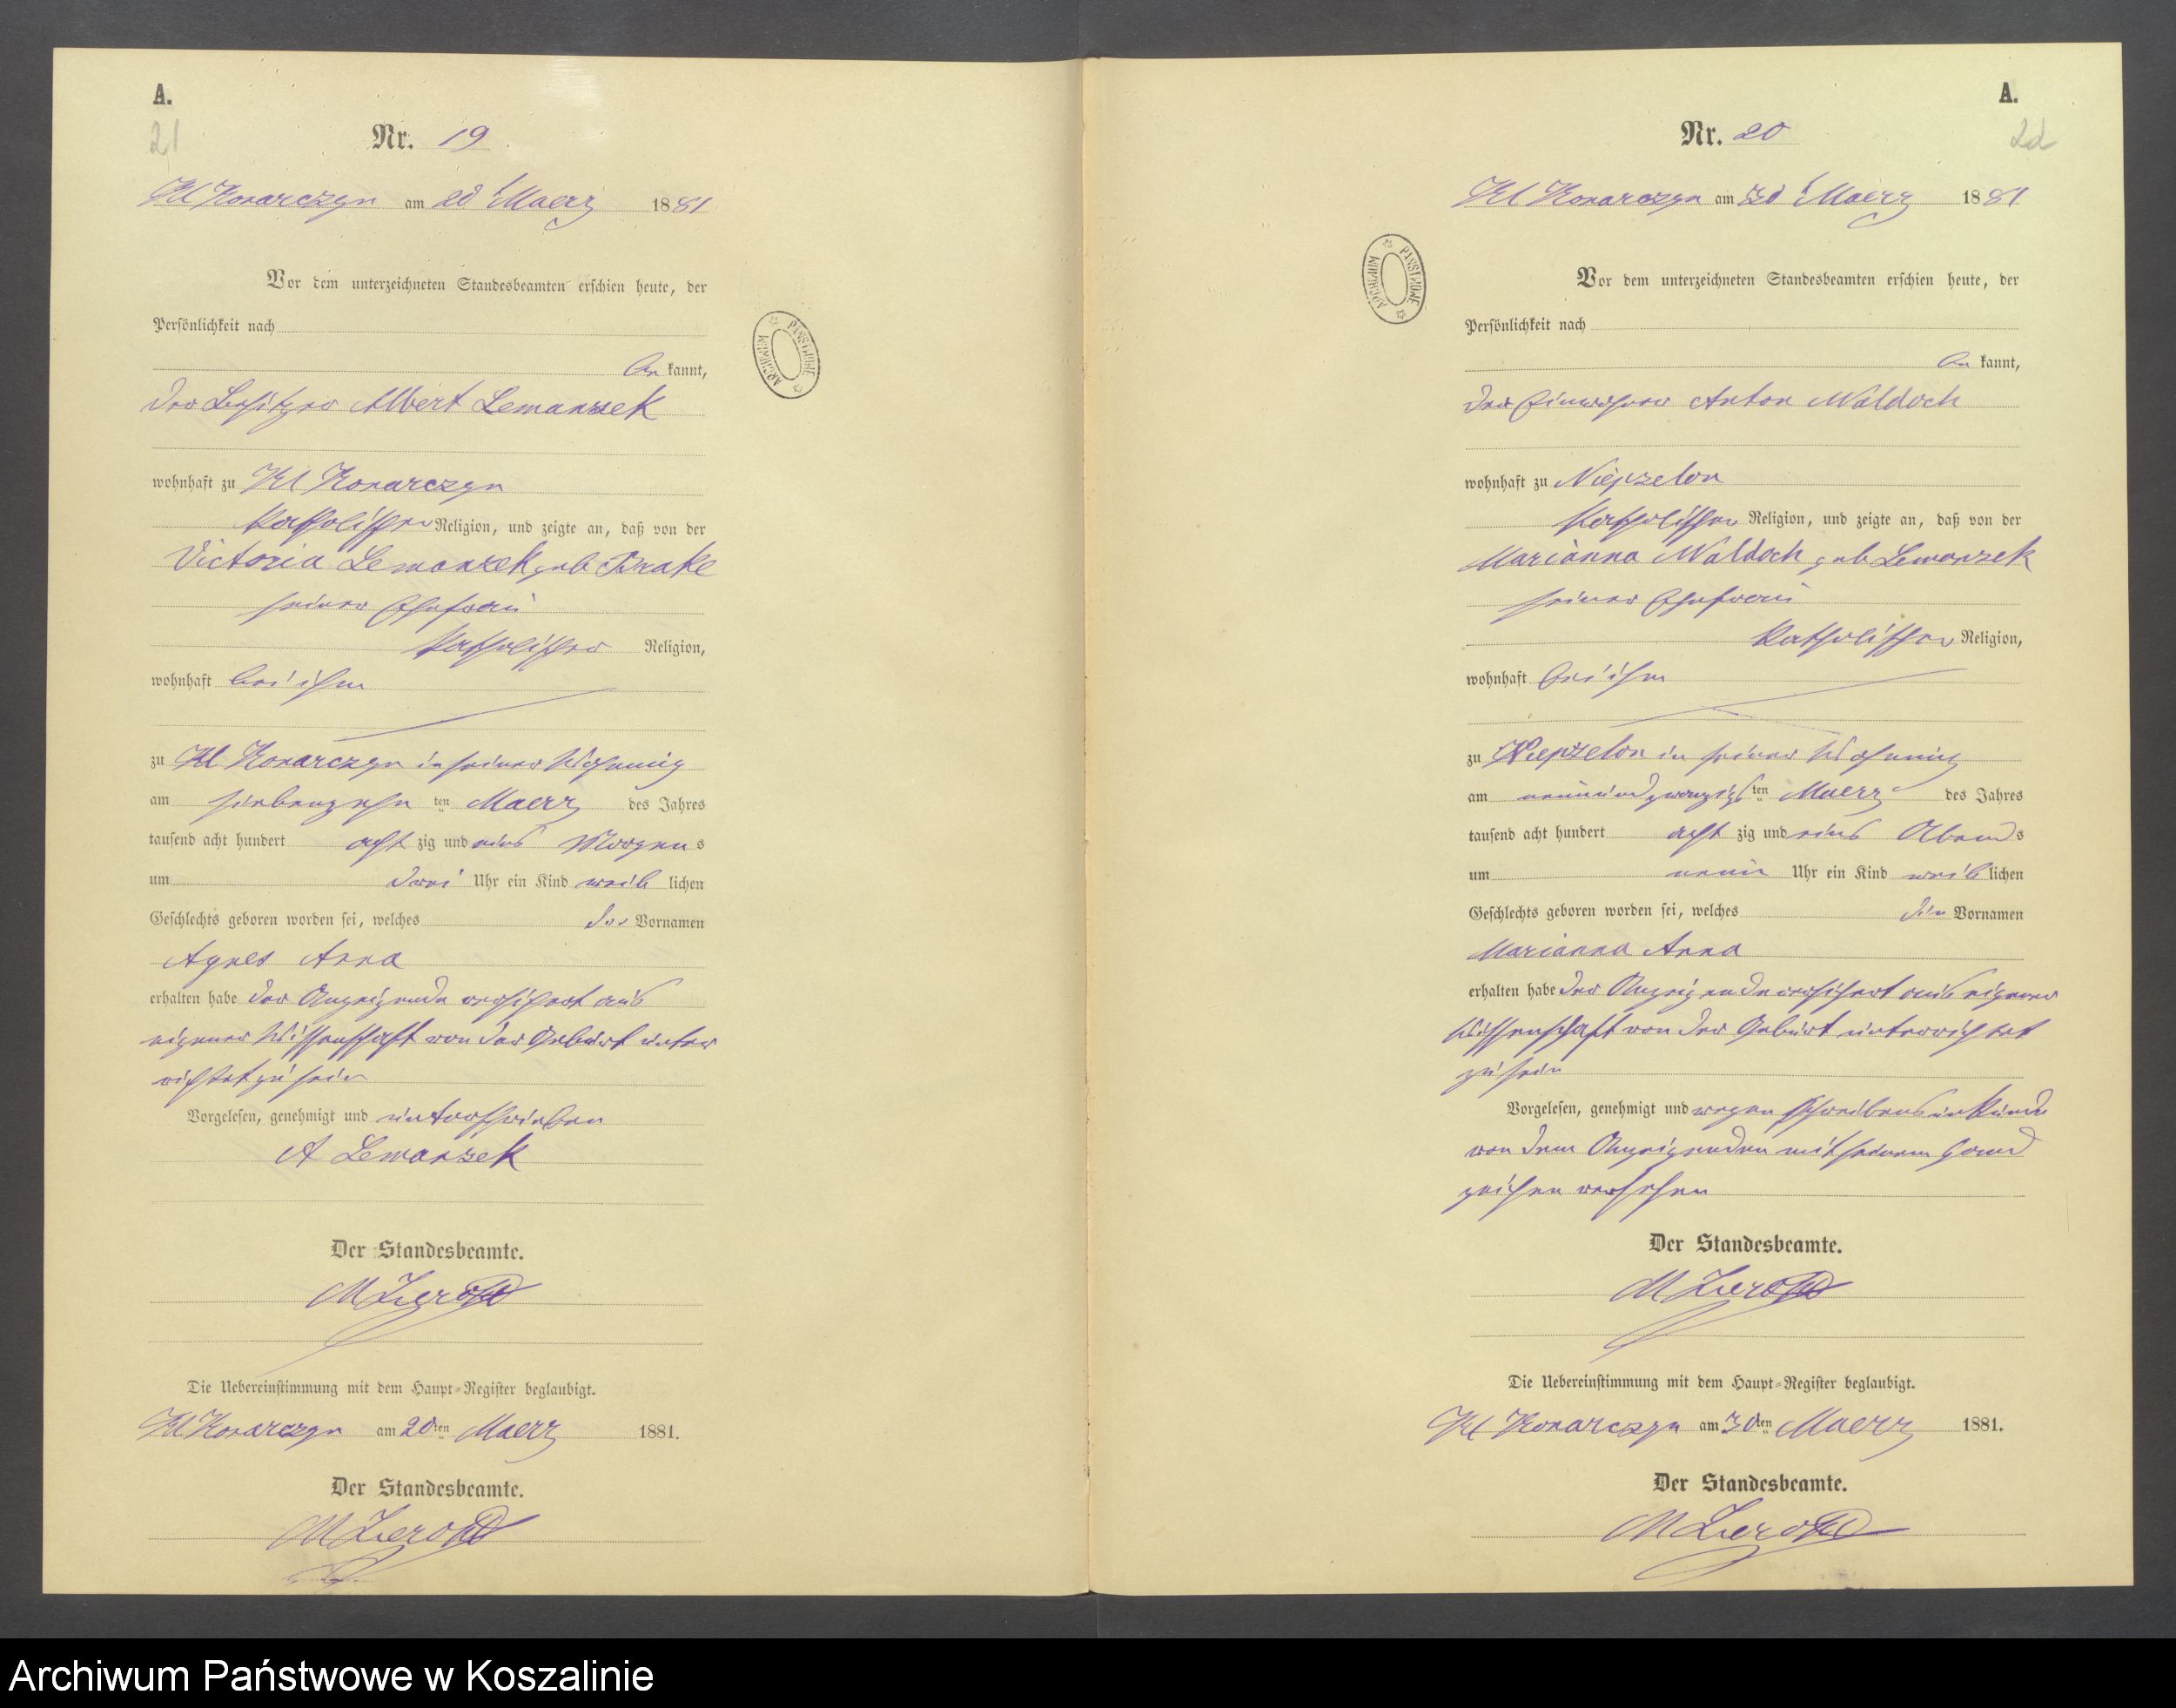 A.
21
Nr. 19
Kl Konarczyn am 20t Maerz 1881
Vor dem unterzeichneten Standesbeamten erschien heute, der
Persönlichkeit nach
be kannt,
der Besitzer Albert Lemanzek
wohnhaft zu Kl Konarczyn
katholischer Religion, und zeigte an, daß von der
Victoria Lemanzek geb Brake
seiner Ehefrau
katholischer Religion,
wohnhaft bei ihm
zu Kl Konarczyn in seiner Wohnung
am siebenzehn ten Maerz des Jahres
tausend acht hundert acht zig und eins Morgens
um drei Uhr ein Kind weib lichen
Geschlechts geboren worden sei, welches die Vornamen
Agnes Anna
erhalten habe der Anzeigende versichert aus
eigener Wissenschaft von der Geburt unter
richtet zu sein
Vorgelesen, genehmigt und unterschrieben
A Lemanzek
Der Standesbeamte.
Die Uebereinstimmung mit dem Haupt-Register beglaubigt.
Kl Konarczyn am 20ten Maerz 1881.
Der Standesbeamte.
A.
22
Nr. 20
Kl Konarczyn am 30t Maerz 1881
Vor dem unterzeichneten Standesbeamten erschien heute, der
Persönlichkeit nach
be kannt,
der Einwohner Anton Waldoch
wohnhaft zu Niepzelon
katholischer Religion, und zeigte an, daß von der
Marianna Waldoch geb Lemanzek
seiner Ehefrau
katholischer Religion,
wohnhaft bei ihm
zu Niepzelon in seiner Wohnung
am neunundzwanzigs ten Maerz des Jahres
tausend acht hundert acht zig und eins Abends
um neun Uhr ein Kind weib lichen
Geschlechts geboren worden sei, welches die Vornamen
Marianna Anna
erhalten habe der Anzeigende versichert aus eigener
Wissenschaft von der Geburt unterrichtet
zu sein
Vorgelesen, genehmigt und wegen Schreibensunkunde
von dem Anzeigenden mit seinem Hand
zeichen versehen
Der Standesbeamte.
Die Uebereinstimmung mit dem Haupt-Register beglaubigt.
Kl Konarczyn am 30ten Maerz 1881.
Der Standesbeamte.
ARCHIWUM PAŃSTWOWE
ARCHIWUM PAŃSTWOWE
Archiwum Państwowe w Koszalinie